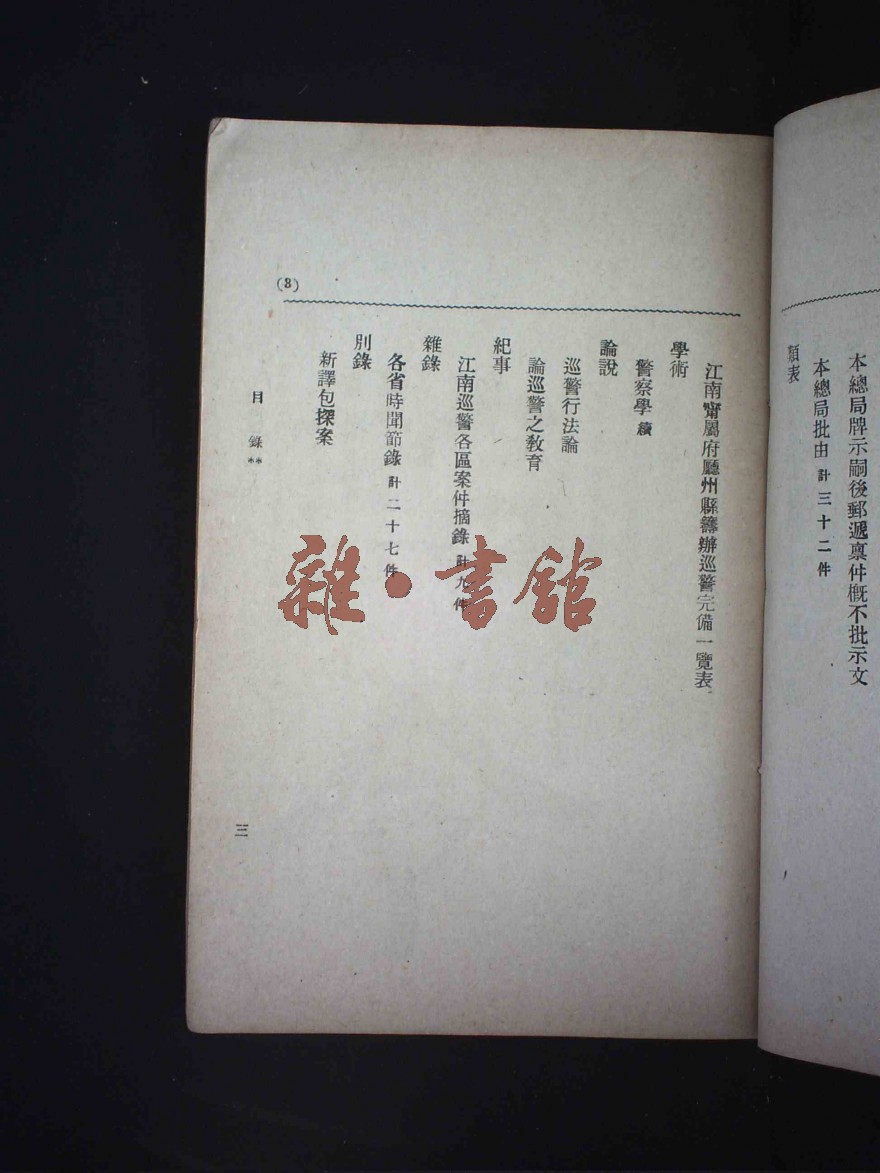 本總局牌示嗣後郵遞稟件概不批示文
本總局批由計三十二件
類表
江南甯屬府廳州縣籌辦巡警完備一覽表
學術
警察學續
論說
巡警行法論
論巡警之教育
紀事
江南巡警各區案件摘錄計九件
雜錄
各省時聞節錄計二十七件
別錄
新譯包探案
目錄**
三
(8)
雜·書館